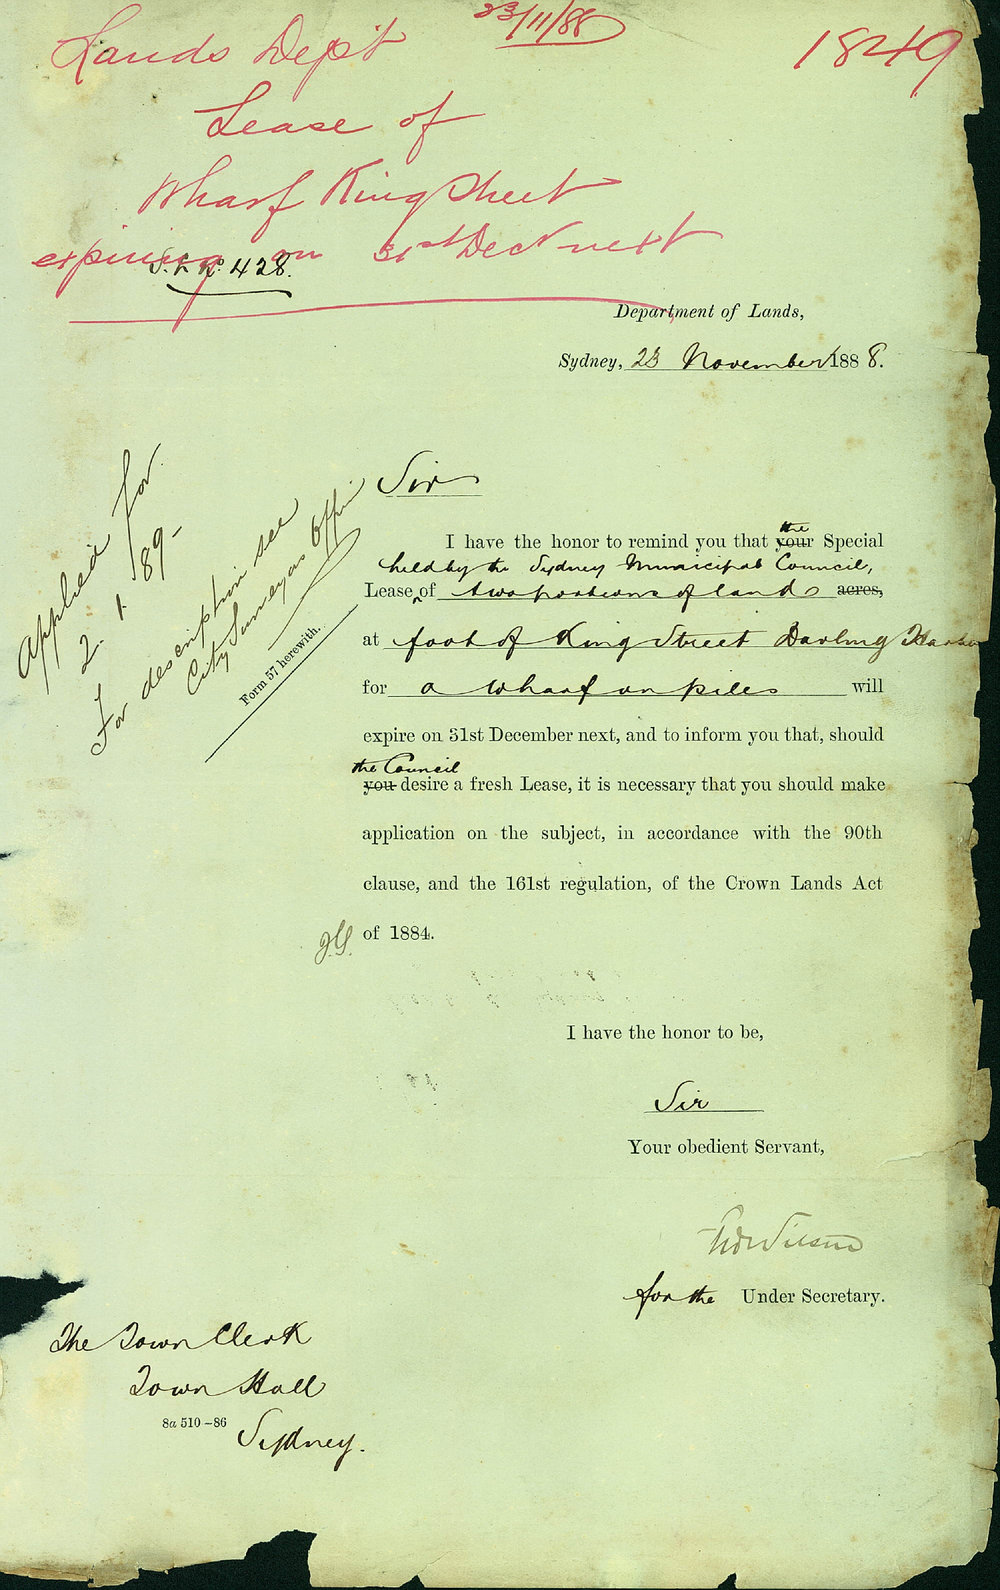 23/11/88
Lands Dept
1849
Lease of
Wharf King Street
expiring on 31st Dec next
S.L. No. 428.
Department of Lands,
Sydney, 23 November 1888.
Applied for
2. 1. 89-
For description see
City Surveyors Office
Form 57 herewith.
Sir
the
I have the honor to remind you that your Special
held by the Sydney Municipal Council,
Lease of two portions of land acres,
at foot of King Street Darling Harbor
for a wharf on piles will
expire on 31st December next, and to inform you that, should
the Council
you desire a fresh Lease, it is necessary that you should make
application on the subject, in accordance with the 90th
clause, and the 161st regulation, of the Crown Lands Act
of 1884.
I have the honor to be,
Sir
Your obedient Servant,
for the Under Secretary.
The Town Clerk
Town Hall
8a 510-86
Sydney.